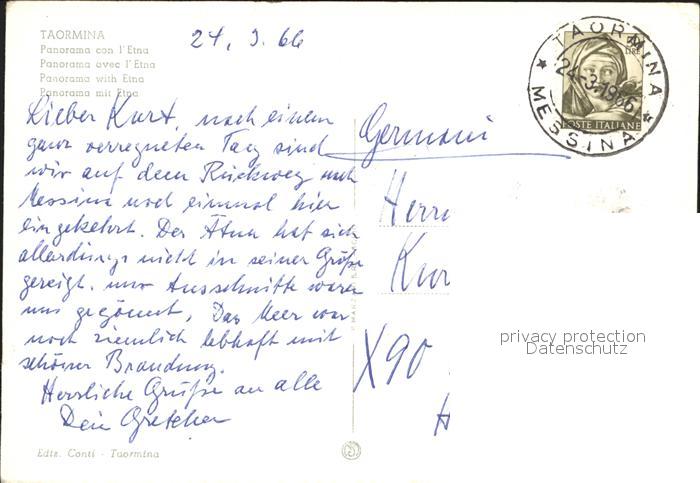 TAORMINA
Panorama con l'Etna
Panorama avec l'Etna
Panorama with Etna
Panorama mit Etna
24. 3. 66
Lieber Kurt, nach einem
ganz verregneten Tag sind
wir auf dem Rückweg nach
Messina noch einmal hier
eingekehrt. Der Ätna hat sich
allerdings nicht in seiner Größe
gezeigt. nur Ausschnitte waren
uns gegönnt. Das Meer war
noch ziemlich lebhaft mit
schöner Brandung.
Herrliche Grüße an alle
Dein Gretchen
Ediz. Conti - Taormina
LIRE
POSTE ITALIANE
TAORMINA
24-3.1966
MESSINA
Germani
Herrn
Kur
X90
H
privacy protection
Datenschutz